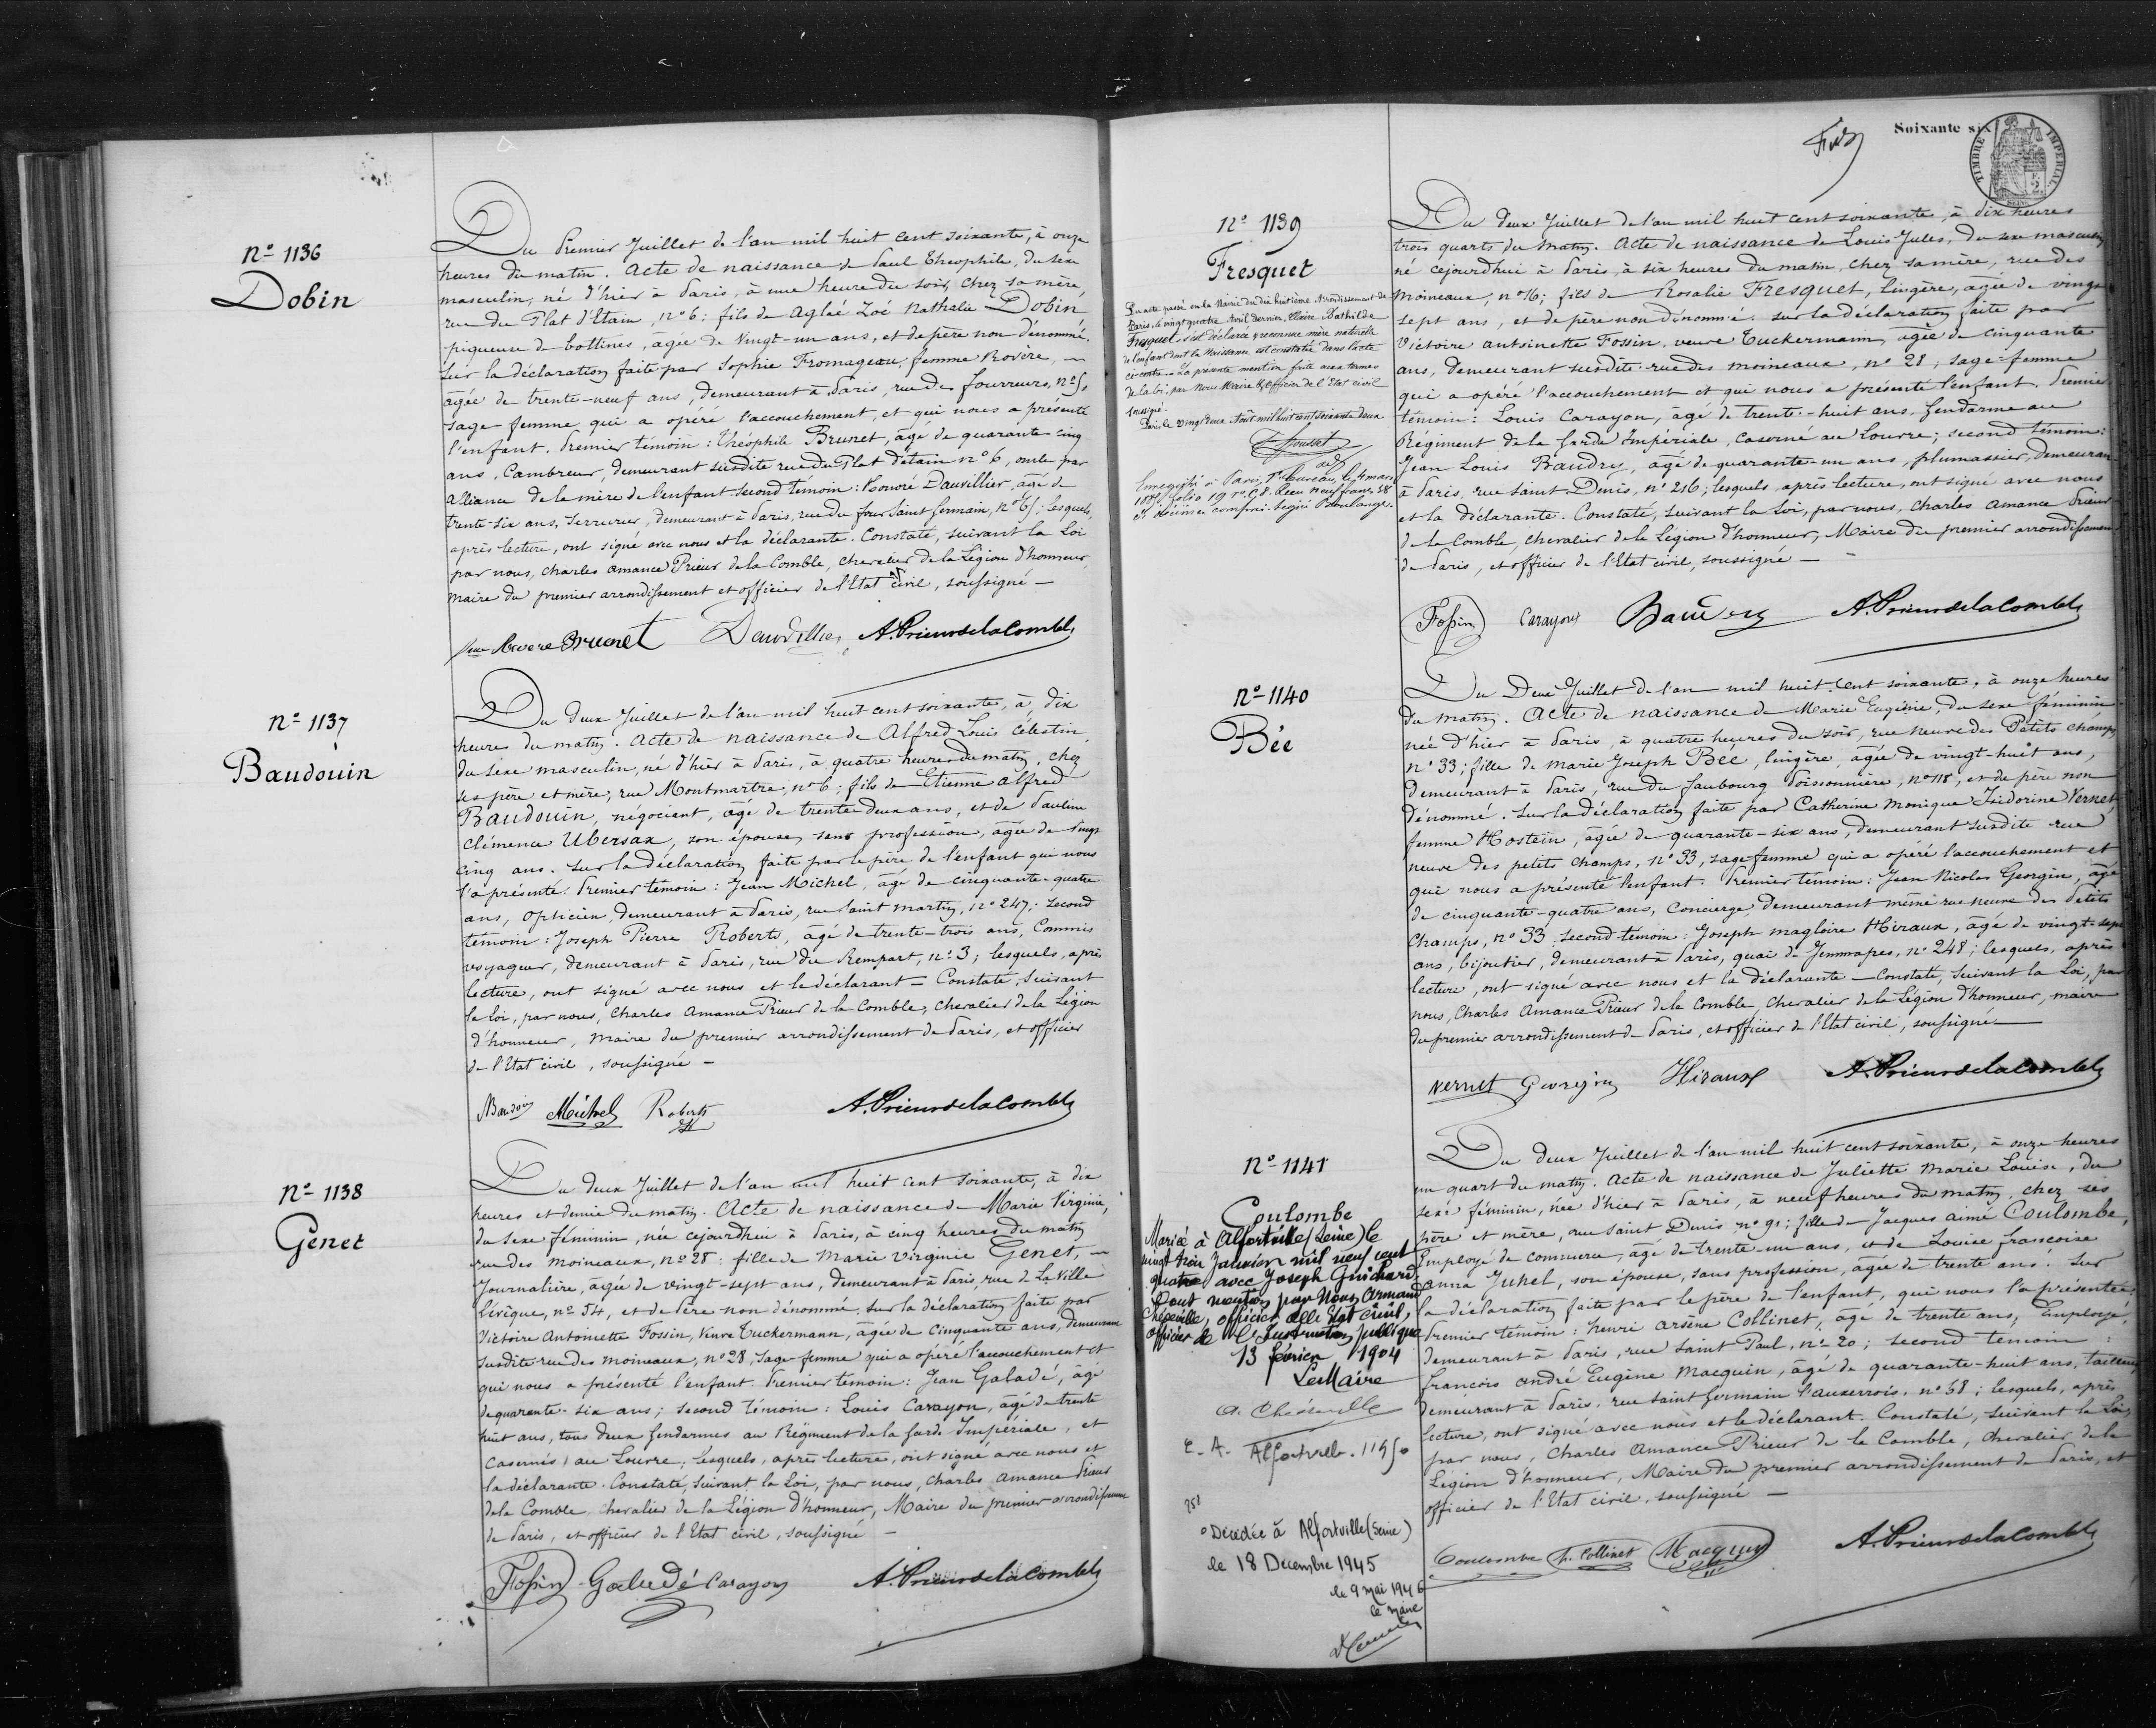 Nº 1136
Dobin
Du Premier Juillet de l'an mil huit cent soixante, à onze
heures du matin. Acte de naissance de Paul Théophile, du sexe
masculin, né d'hier à Paris, à une heure du soir, chez sa mère,
rue du Plat d'Etain, nº 6; fils de Aglaé Zoé Nathalie Dobin,
piqueuse de bottines, agée de vingt-un ans, et de père non dénommé.
Sur la déclaration faite par Sophie Fromageau, femme Rovère,
agée de trente-neuf ans, demeurant à Paris, rue des fourreurs, nº 5,
sage-femme qui a opéré l'accouchement, et qui nous a présenté
l'enfant. Premier témoin: Théophile Brunet, âgé de quarante-cinq
ans, Cambreur, demeurant susdite rue du Plat d'étain nº 6, oncle par
alliance de la mère de l'enfant second témoin: Honoré Dauvillier, âgé de
trente-six ans, serrurier, demeurant à Paris, rue du four Saint germain, nº 61; lesquels,
après lecture, ont signé avec nous et la déclarante. Constaté, suivant la Loi
par nous, Charles Amance Prieur de la Comble, chevalier de la Légion d'honneur,
maire du premier arrondissement et officier de l'Etat civil, soussigné —
fme Rovere Brunet Dauvillier A. Prieur de la Comble
Nº 1137
Baudouin
Du deux Juillet de l'an mil huit cent soixante, à dix
heures du matin. Acte de naissance de Alfred Louis Célestin,
du sexe masculin, né d'hier à Paris, à quatre heures du matin, chez
ses père et mère, rue Montmartre, nº 6; fils de Etienne Alfred
Baudouin, négociant, âgé de trente deux ans, et de Pauline
Clémence Ubersax, son épouse, sans profession, agée de vingt
cinq ans. Sur la déclaration faite par le père de l'enfant qui nous
l'a présenté. Premier témoin: Jean Michel, âgé de cinquante-quatre
ans, opticien, demeurant à Paris, rue Saint Martin, nº 247; second
témoin: Joseph Pierre Roberts, âgé de trente-trois ans, Commis
voyageur, demeurant à Paris, rue du Rempart, nº 3; lesquels, après
lecture, ont signé avec nous et le déclarant = Constaté, suivant
la Loi, par nous, Charles Amance Prieur de la Comble, chevalier de la Légion
d'honneur, maire du premier arrondissement de Paris, et officier
de l'Etat civil, soussigné —
Baudouin Michel Roberts A. Prieur de la Comble
Nº 1138
Genet
Du deux Juillet de l'an mil huit cent soixante, à dix
heures et demie du matin. Acte de naissance de Marie Virginie,
du sexe féminin, née cejourd'hui à Paris, à cinq heures du matin
rue des moineaux, nº 28; fille de Marie Virginie Genet,
Journalière, agée de vingt-sept ans, demeurant à Paris, rue de La Ville
l'évêque, nº 54, et de Père non dénommé, sur la déclaration faite par
Victoire Antoinette Fossin, Veuve Tuckermann, agée de cinquante ans, demeurant
susdite rue des moineaux, nº 28, sage-femme qui a opéré l'accouchement et
qui nous a présenté l'enfant. Premier témoin: Jean Galadé, âgé
de quarante-six ans; second témoin: Louis Carayon, âgé de trente
huit ans, tous deux gendarmes au Régiment de la garde Impériale, et
casernés au Louvre; lesquels, après lecture, ont signé avec nous et
la déclarante. Constaté, suivant la Loi, par nous, Charles Amance Prieur
de la Comble chevalier de la Légion d'honneur, Maire du premier arrondissement
de Paris, et officier de l'Etat civil, soussigné —
Fossin Galadé Carayon A. Prieur de la Comble
Soixante six
TIMBRE IMPERIAL
Nº 1139
Fresquet
Par acte passé en la Mairie du dix huitième Arrondissement de
Paris, le vingt quatre Avril dernier, Bathilde
Fresquet s'est déclarée & reconnue mère naturelle
de l'enfant dont la Naissance est constatée dans l'acte
ci-contre. La présente mention faite aux termes
de la loi, par Nous Maire & Officier de l'Etat civil
soussigné.
Paris le vingt deux Août mil huit cent soixante deux
Enregistré à Paris, 1er bureau, le 4 mars
folio 19 rº c. 8. Reçu neuf francs 38
décimes compris. Signé Boulanger.
Du deux Juillet de l'an mil huit cent soixante, à dix heures
trois quarts du matin. Acte de naissance de Louis Jules, du sexe masculin
né cejourdhui à Paris, à six heures du matin, chez sa mère, rue des
Moineaux, nº 16; fils de Rosalie Fresquet, lingère, agée de vingt
sept ans, et de père non dénommé. sur la déclaration faite par
Victoire Antoinette Fossin, veuve Tuckermann, agée de cinquante
ans, demeurant susdite rue des moineaux, nº 28, sage-femme
qui a opéré l'accouchement et qui nous a présenté l'enfant. Premier
témoin: Louis Carayon, âgé de trente-huit ans, gendarme au
Régiment de la Garde Impériale, caserné au Louvre; second témoin:
Jean Louis Baudry, âgé de quarante-un ans, plumassier, demeurant
à Paris, rue Saint Denis, nº 216; lesquels, après lecture, ont signé avec nous
et la déclarante. Constaté, suivant la Loi, par nous, Charles Amance Prieur
de la Comble, chevalier de la Légion d'honneur, Maire du premier arrondissement
de Paris, et officier de l'Etat civil, soussigné —
Fossin Carayon Baudry A. Prieur de la Comble
Nº 1140
Bée
Du Deux Juillet de l'an mil huit cent soixante, à onze heures
du matin. Acte de naissance de Marie Eugénie, du sexe féminin
née d'hier à Paris, à quatre heures du soir, rue neuve des Petits champs,
nº 33; fille de Marie Joseph Bée, lingère, agée de vingt-huit ans,
demeurant à Paris, rue du faubourg Poissonnière, nº 118, et de père non
dénommé. Sur la déclaration faite par Catherine Monique Isidorine Vernet,
femme Hostein, agée de quarante-six ans, demeurant susdite rue
neuve des petits champs, nº 33, sage-femme qui a opéré l'accouchement et
qui nous a présenté l'enfant. Premier témoin: Jean Nicolas Georgin, âgé
de cinquante-quatre ans, Concierge, demeurant même rue neuve des Petits
Champs, nº 33, second témoin: Joseph Magloire Hiraux, âgé de vingt-sept
ans, bijoutier, demeurant à Paris, quai de Jemmapes, nº 248; lesquels, après
lecture, ont signé avec nous et la déclarante — Constaté, suivant la Loi, par
nous, Charles Amance Prieur de la Comble, chevalier de la Légion d'honneur, maire
du premier arrondissement de Paris, et officier de l'Etat civil, soussigné —
Vernet Georgin Hiraux A. Prieur de la Comble
Nº 1141
Coulombe
Mariée à Alfortville (Seine) le
vingt trois Janvier mil neuf cent
quatre avec Joseph Guichard.
Dont mention par Nous Armand
officier de l'Etat Civil,
officier de l'Instruction publique
13 février 1904
Le Maire
E. A. Alfortville.
Décédée à Alfortville (Seine)
le 18 Décembre 1945
le 9 mai 1946
le maire
Du deux Juillet de l'an mil huit cent soixante, à onze heures
un quart du matin. Acte de naissance de Juliette Marie Louise, du
sexe féminin, née d'hier à Paris, à neuf heures du matin, chez ses
père et mère, rue Saint Denis, nº 91; fille de Jacques Aimé Coulombe,
Employé de commerce, agé de trente-un ans, et de Louise françoise
Anna Juhel, son épouse, sans profession, agée de trente ans. Sur
la déclaration faite par le père de l'enfant, qui nous l'a présentée.
Premier témoin: Henri Arsène Collinet, âgé de trente ans, Employé,
demeurant à Paris, rue Saint Paul, nº 20; second témoin
françois andré Eugène Macquin, âgé de quarante-huit ans, tailleur,
demeurant à Paris, rue Saint Germain l'auxerrois, nº 38; lesquels, après
lecture, ont signé avec nous et le déclarant. Constaté, suivant la Loi,
par nous, Charles Amance Prieur de la Comble, chevalier de la
Légion d'honneur, Maire du premier arrondissement de Paris, et
officier de l'Etat civil, soussigné —
Coulombe h. Collinet Macquin A. Prieur de la Comble